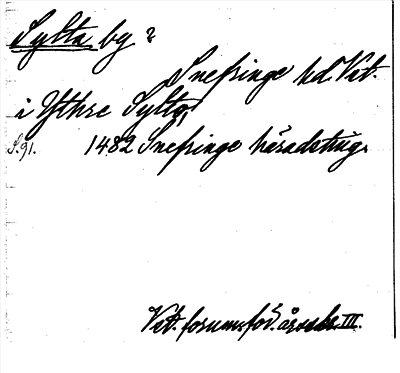 Sylta by ?
Snefringe hd. Vst.
i Ythre Sylta,
S. 91. 1482 Snefringe häradsting.
Vst. fornm.för. årsskr. III.